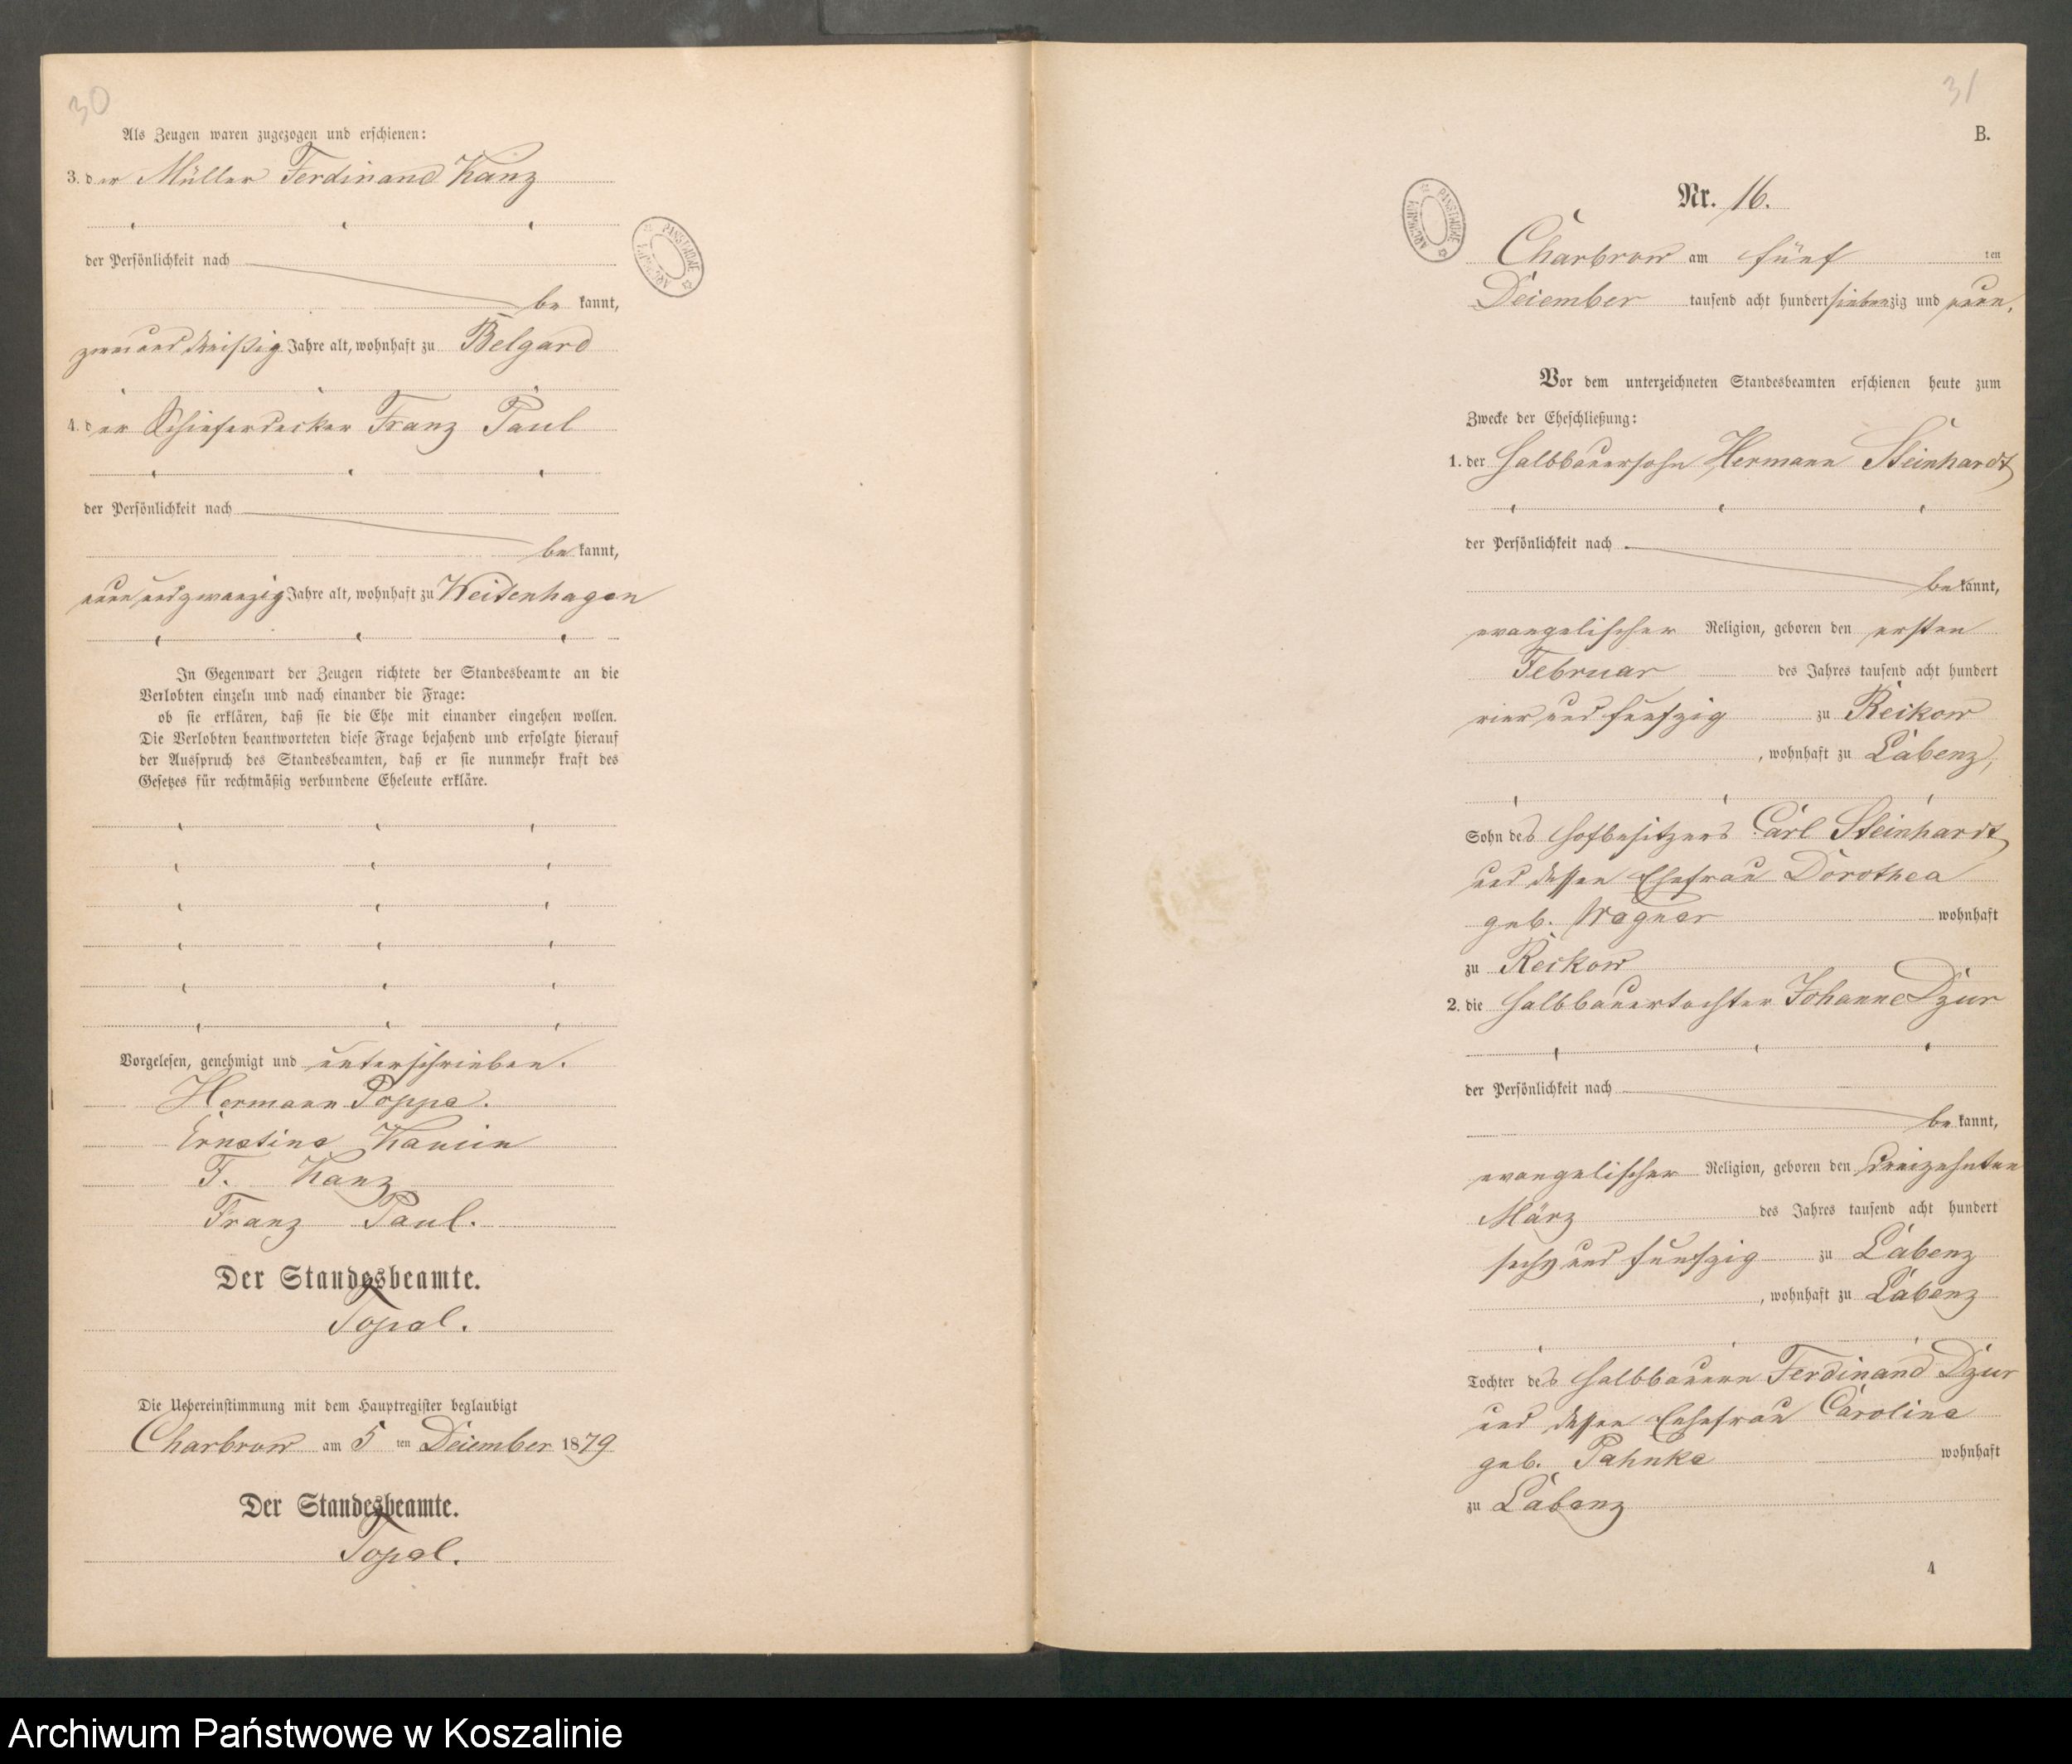 30
Als Zeugen waren zugezogen und erschienen:
3. der Müller Ferdinand Kanz
der Persönlichkeit nach
be kannt,
zwei und dreißig Jahre alt, wohnhaft zu Belgard
4. der Schieferdecker Franz Paul
der Persönlichkeit nach
be kannt,
neun und zwanzig Jahre alt, wohnhaft zu Weitenhagen
In Gegenwart der Zeugen richtete der Standesbeamte an die
Verlobten einzeln und nach einander die Frage:
ob sie erklären, daß sie die Ehe mit einander eingehen wollen.
Die Verlobten beantworteten diese Frage bejahend und erfolgte hierauf
der Ausspruch des Standesbeamten, daß er sie nunmehr kraft des
Gesetzes für rechtmäßig verbundene Eheleute erkläre.
Vorgelesen, genehmigt und unterschrieben.
Hermann Poppe.
Ernstine
F. Kanz
Franz Paul.
Der Standesbeamte.
Topel.
Die Uebereinstimmung mit dem Hauptregister beglaubigt
Charbrow am 5 ten Deiember 1879
Der Standesbeamte.
Topel.
31
B.
ARCHIWUM PAŃSTWOWE
Nr. 16.
Charbrow am fünf ten
Deiember tausend acht hundert siebenzig und neun.
Vor dem unterzeichneten Standesbeamten erschienen heute zum
Zwecke der Eheschließung:
1. der Halbbauersohn Hermann Steinhardt
der Persönlichkeit nach
be kannt,
evangelischer Religion, geboren den ersten
Februar des Jahres tausend acht hundert
vier und funfzig zu Reikow
, wohnhaft zu Labenz,
Sohn des Hofbesitzers Carl Steinhardt
und dessen Ehefrau Dorothea
geb. Wagner wohnhaft
zu Reikow
2. die Halbbauertochter Johanne Dzur
der Persönlichkeit nach
be kannt,
evangelischer Religion, geboren den dreizehnten
März des Jahres tausend acht hundert
sechs und funfzig zu Labenz
, wohnhaft zu Labenz
Tochter des Halbbauern Ferdinand Dzur
und dessen Ehefrau Caroline
geb. Pahnke wohnhaft
zu Labenz
4
Archiwum Państwowe w Koszalinie